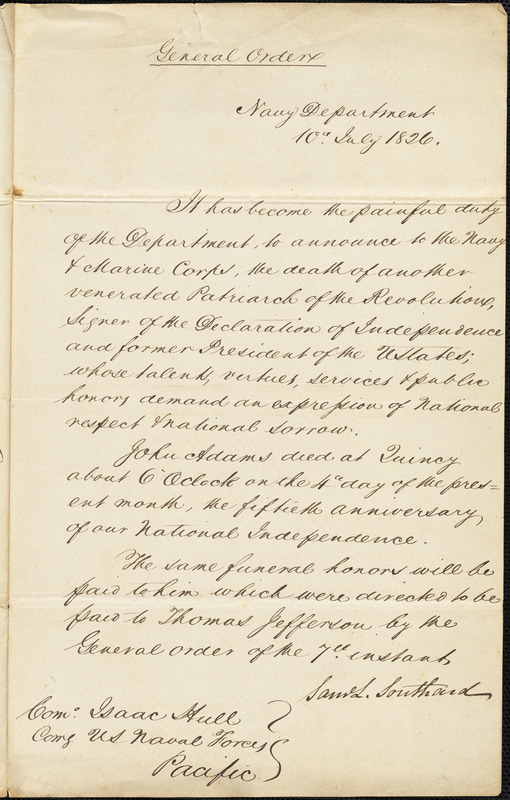 General Order
Navy Department
10th July 1826.
It has become the painful duty
of the Department, to announce to the Navy
& Marine Corps, the death of another
venerated Patriarch of the Revolution,
Signer of the Declaration of Independence
and former President of the UStates;
whose talents, virtues, services & public
honors demand an expression of National
respect & national sorrow.
John Adams died at Quincy
about 6 Oclock on the 4th day of the pres=
ent month, the fiftieth anniversary
of our National Independence.
The same funeral honors will be
paid to him which were directed to be
paid to Thomas Jefferson by the
General order of the 7th instant
Saml. L. Southard
Como. Isaac Hull
Comg US Naval Forces
Pacific